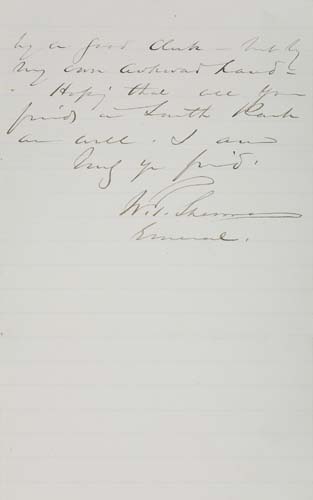 by a good Clerk – but by
my own awkward hand –
Hoping that all your
friends in South Park
are well. I am
truly yr friend.
W.T. Sherman
General.